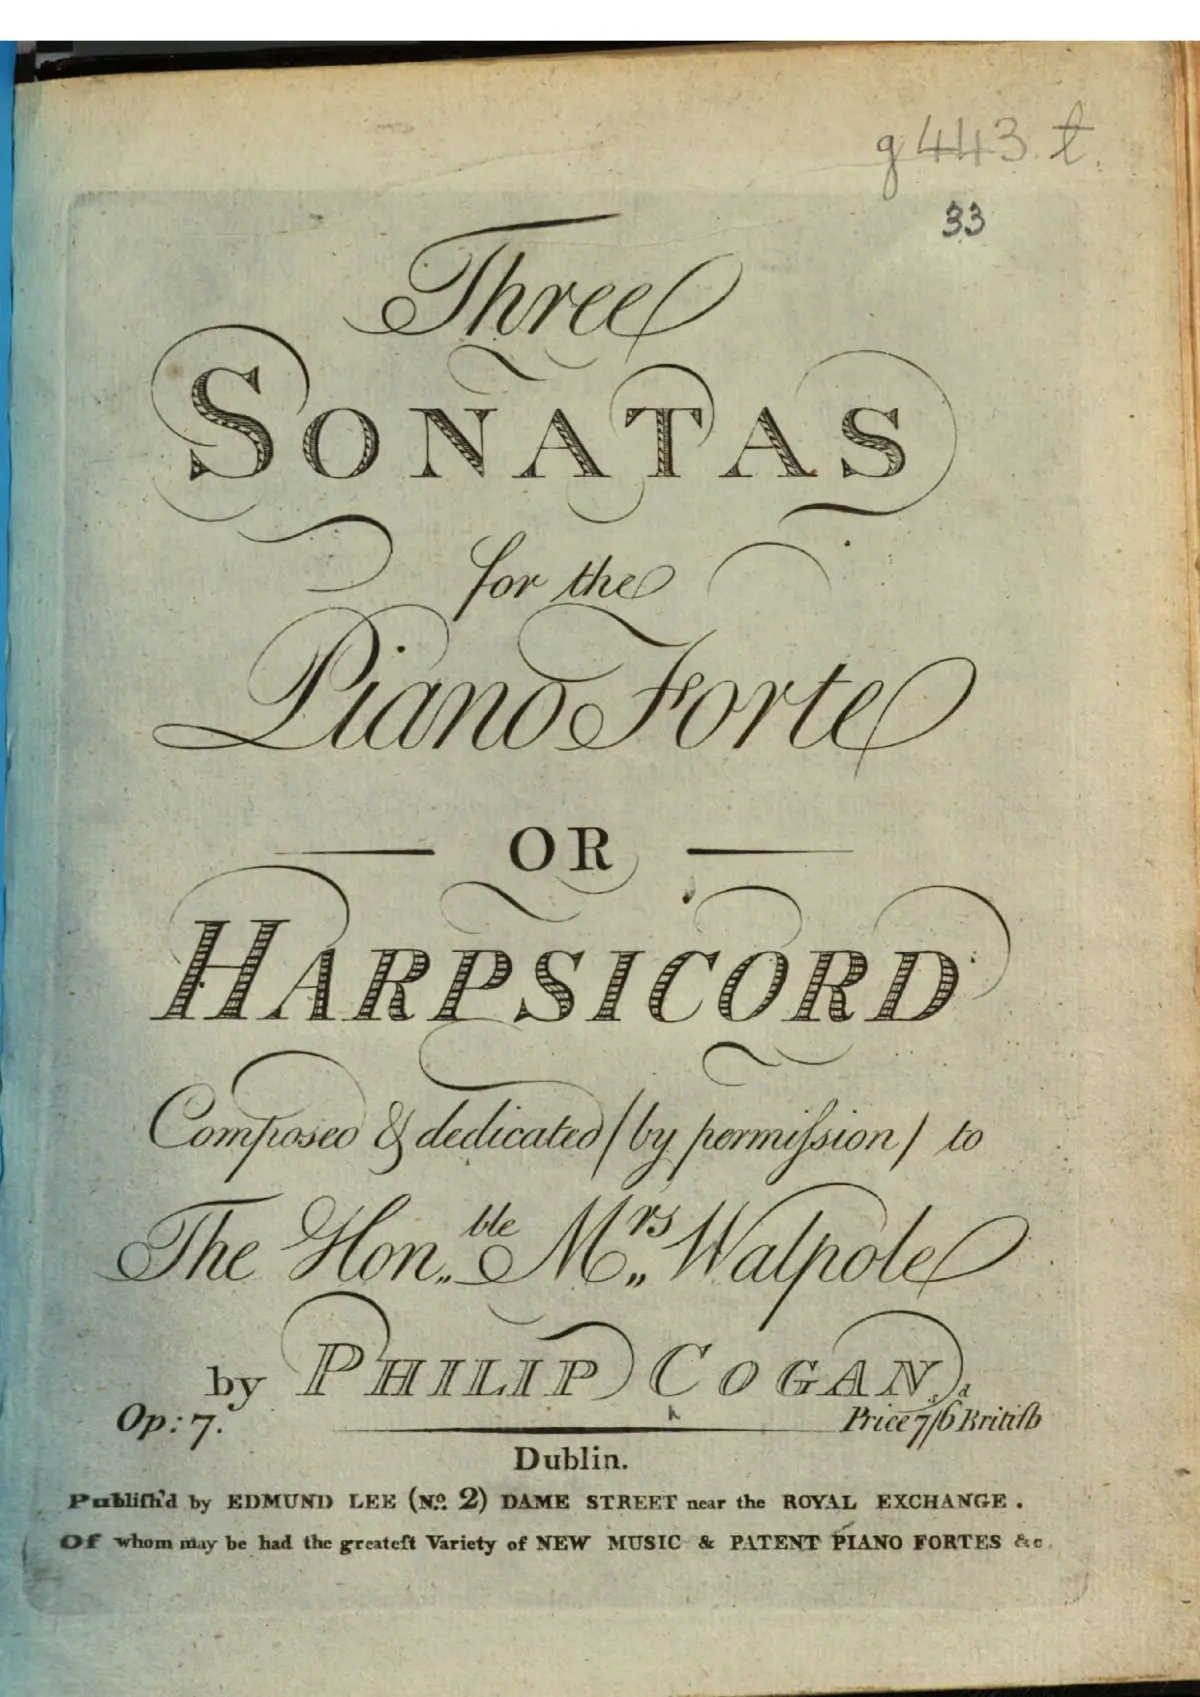 g 443. t.
33
Three
SONATAS
for the
Piano Forte
OR
HARPSICORD
Composed & dedicated / by permiſsion / to
The Hon.ble Mrs Walpole
by PHILIP COGAN
Op: 7. Price 7s/6d Britiſh
Dublin.
Publiſh'd by EDMUND LEE (No. 2) DAME STREET near the ROYAL EXCHANGE.
Of whom may be had the greateſt Variety of NEW MUSIC & PATENT PIANO FORTES &c.